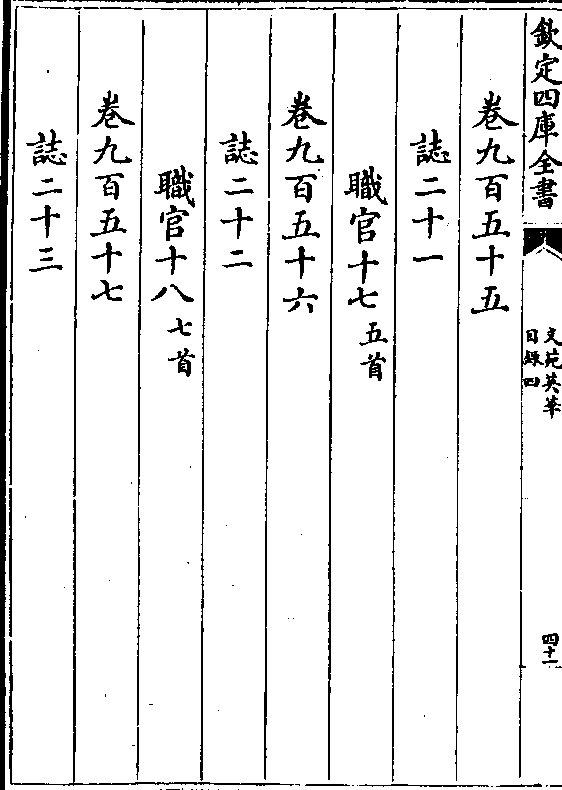 欽定四庫全書
文苑英華
目錄四
四十一
卷九百五十五
誌二十一
職官十七五首
卷九百五十六
誌二十二
職官十八七首
卷九百五十七
誌二十三